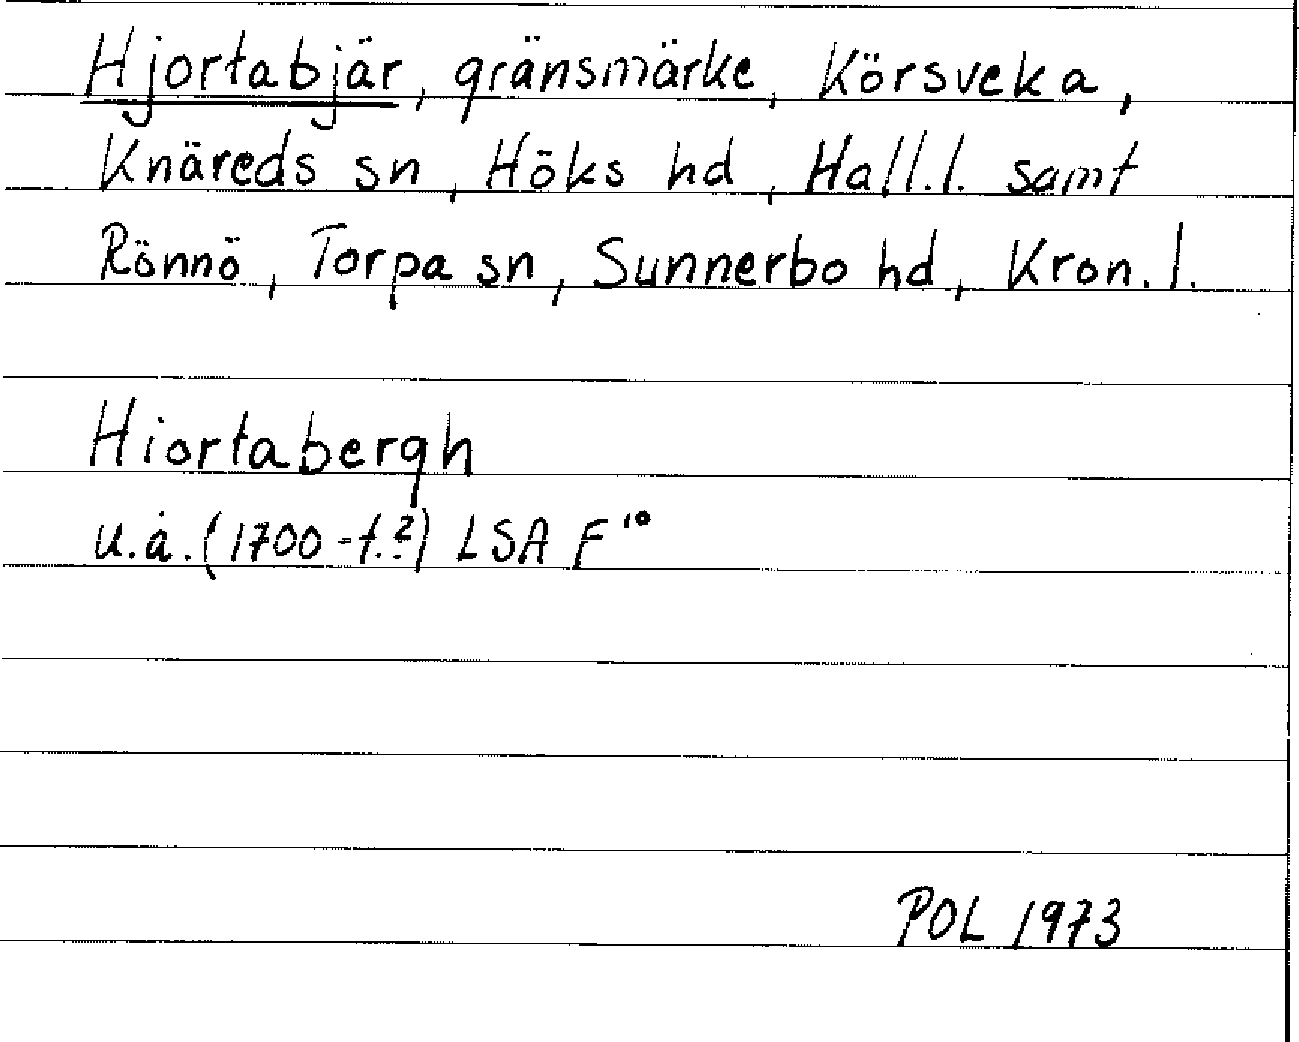 Hjortabjär, gränsmärke, Körsveka,
Knäreds sn, Höks hd, Hall.l. samt
Rönnö, Torpa sn, Sunnerbo hd, Kron.l.
Hiortabergh
u.å. (1700-t.?) LSA F¹⁰
POL 1973